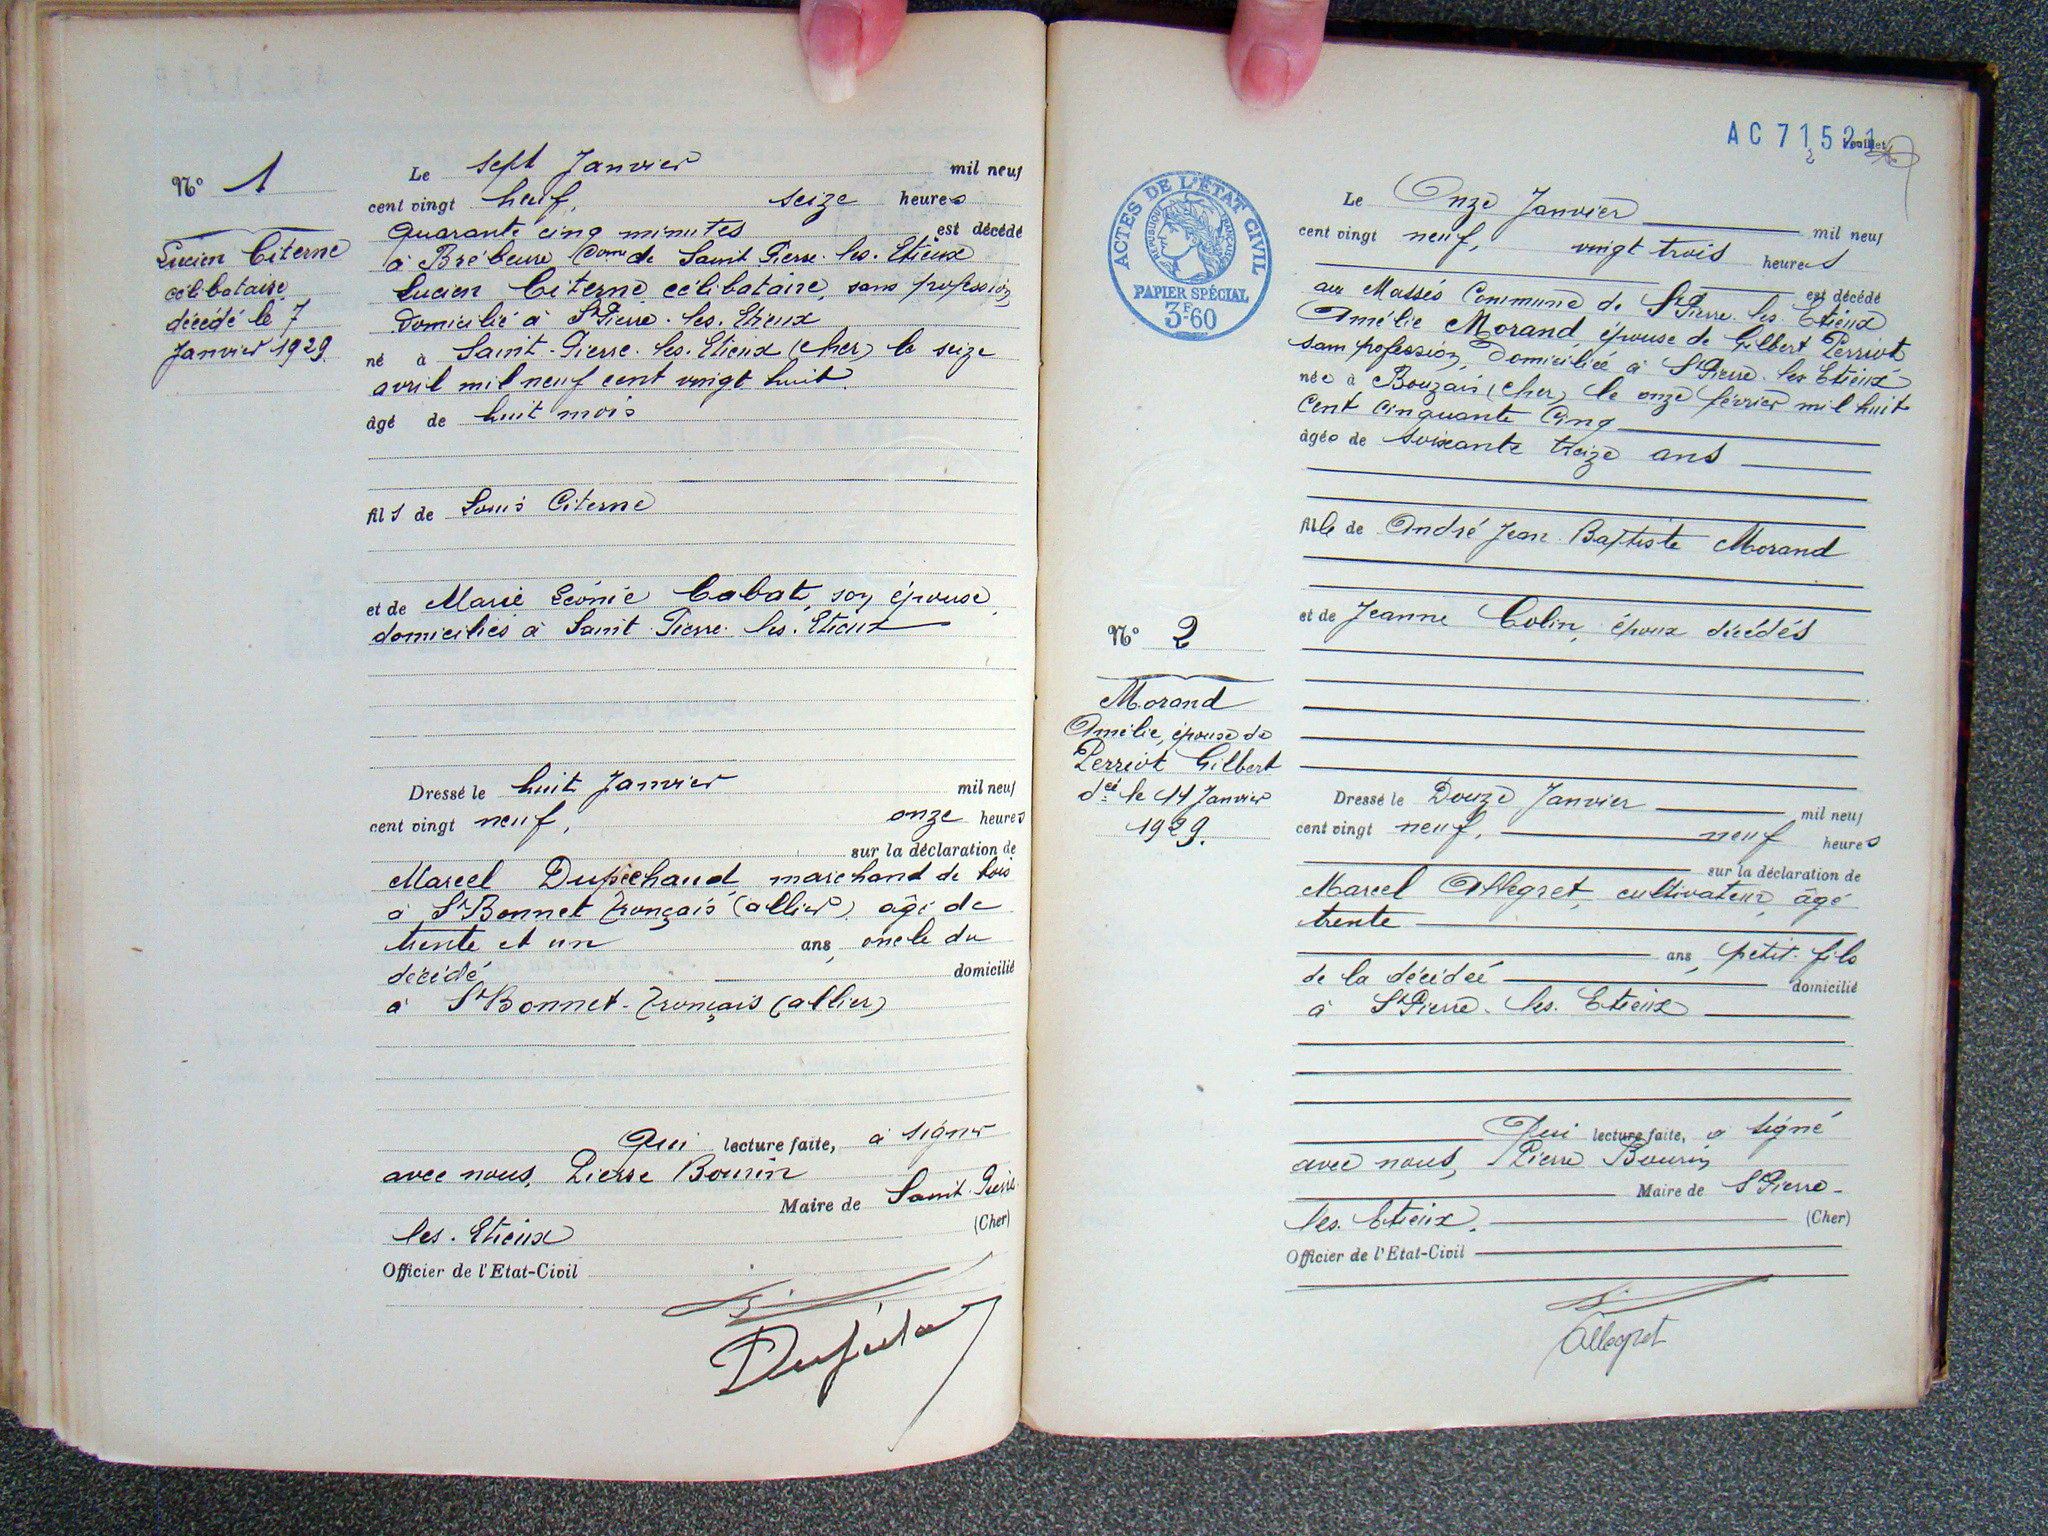 N° 1
Lucien Citerne
célibataire
décédé le 7
Janvier 1929
Le sept Janvier mil neuf
cent vingt neuf, seize heures
quarante cinq minutes est décédé
à Brébeurre Comne de Saint Pierre. les. Etieux
Lucien Citerne célibataire, sans profession,
domicilié à St Pierre. les. Etieux
né à Saint-Pierre. les. Etieux (Cher) le seize
avril mil neuf cent vingt huit.
âgé de huit mois
fils de Louis Citerne
et de Marie Léonie Cabat, son épouse,
domiciliés à Saint Pierre. les. Etieux
Dressé le huit Janvier mil neuf
cent vingt neuf, onze heures
sur la déclaration de
Marcel Dupéchaud marchand de bois
à St Bonnet Tronçais (allier) âgé de
trente et un ans, oncle du
décédé domicilié
à St Bonnet-Tronçais (allier)
Qui lecture faite, a signé
avec nous, Pierre Bourin
Maire de Saint. Pierre
les. Etieux (Cher)
Officier de l'Etat-Civil
AC 71521
Feuillet
2
ACTES DE L'ÉTAT CIVIL
RÉPUBLIQUE FRANÇAISE
PAPIER SPÉCIAL
3F60
N° 2
Morand
Amélie, épouse de
Perriot Gilbert
dée le 11 Janvier
1929.
Le Onze Janvier mil neuf
cent vingt neuf, vingt trois heures
est décédé
aux Massés Commune de St Pierre. les. Etieux
Amélie Morand, épouse de Gilbert Perriot
sans profession, domiciliée à St Pierre. les Etieux
née à Bouzais (Cher) le onze février mil huit
cent cinquante cinq
âgée de soixante treize ans
fille de André Jean Baptiste Morand
et de Jeanne Colin, époux décédés
Dressé le Douze Janvier mil neuf
cent vingt neuf, neuf heures
sur la déclaration de
Marcel Allegret, cultivateur, âgé
trente
ans, petit-fils
de la décédée domicilié
à St Pierre. les. Etieux
Qui lecture faite, a signé
avec nous, Pierre Bourin
Maire de St Pierre-
les. Etieux. (Cher)
Officier de l'Etat-Civil
Allegret